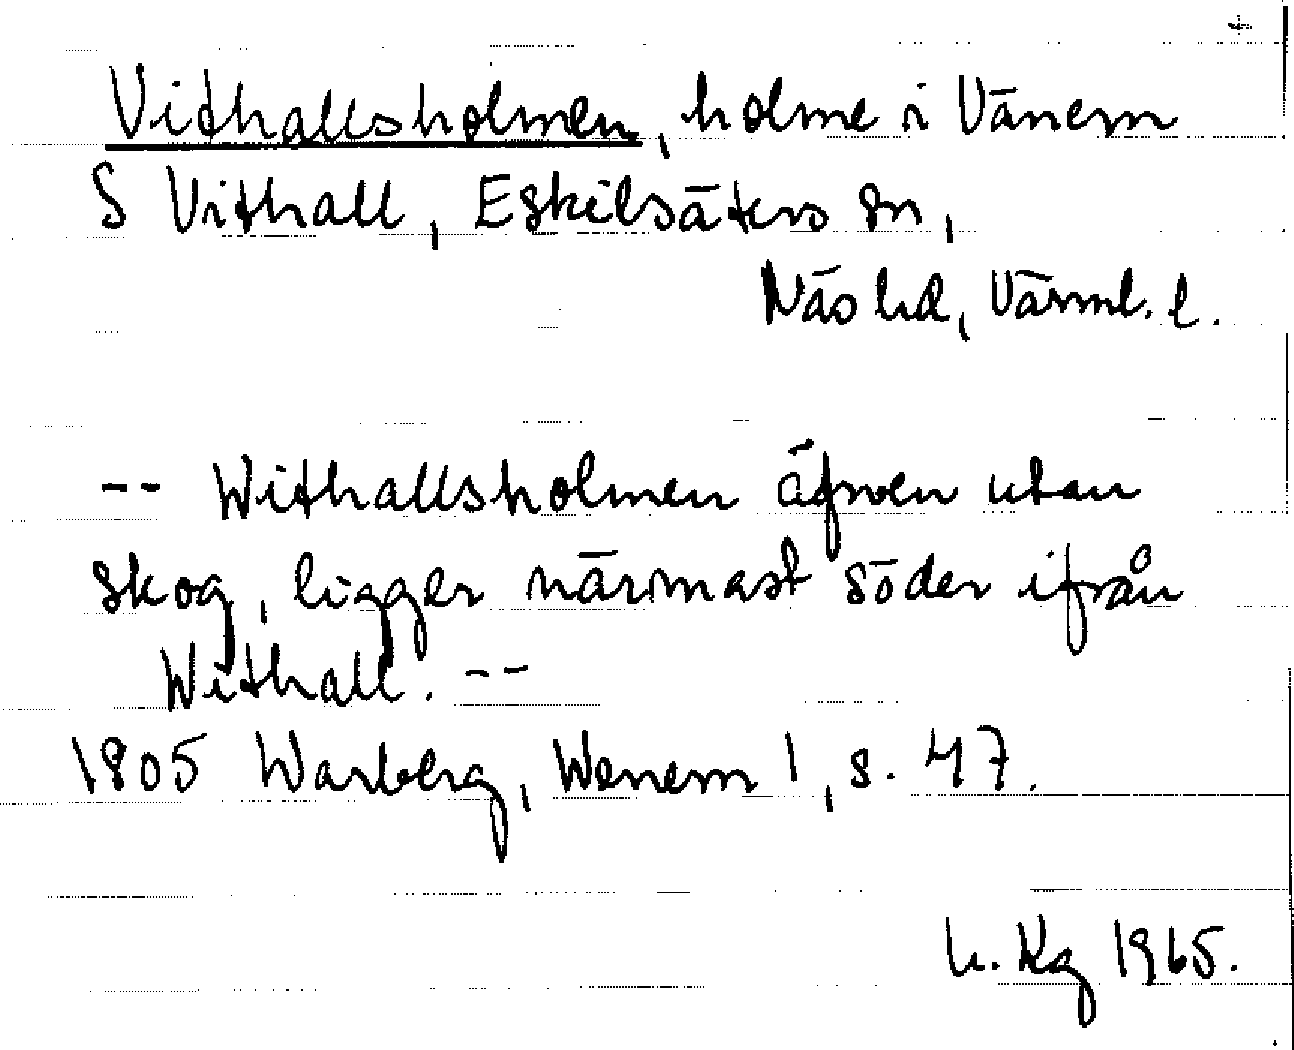 +
Vithallsholmen, holme i Vänern
S Vithall, Eskilsäters sn,
Näs hd, Värml. l.
-- Withallsholmen äfwen utan
skog, ligger närmast söder ifrån
Withall. --
1805 Warberg, Wenern 1, s. 47.
h. Kg 1965.